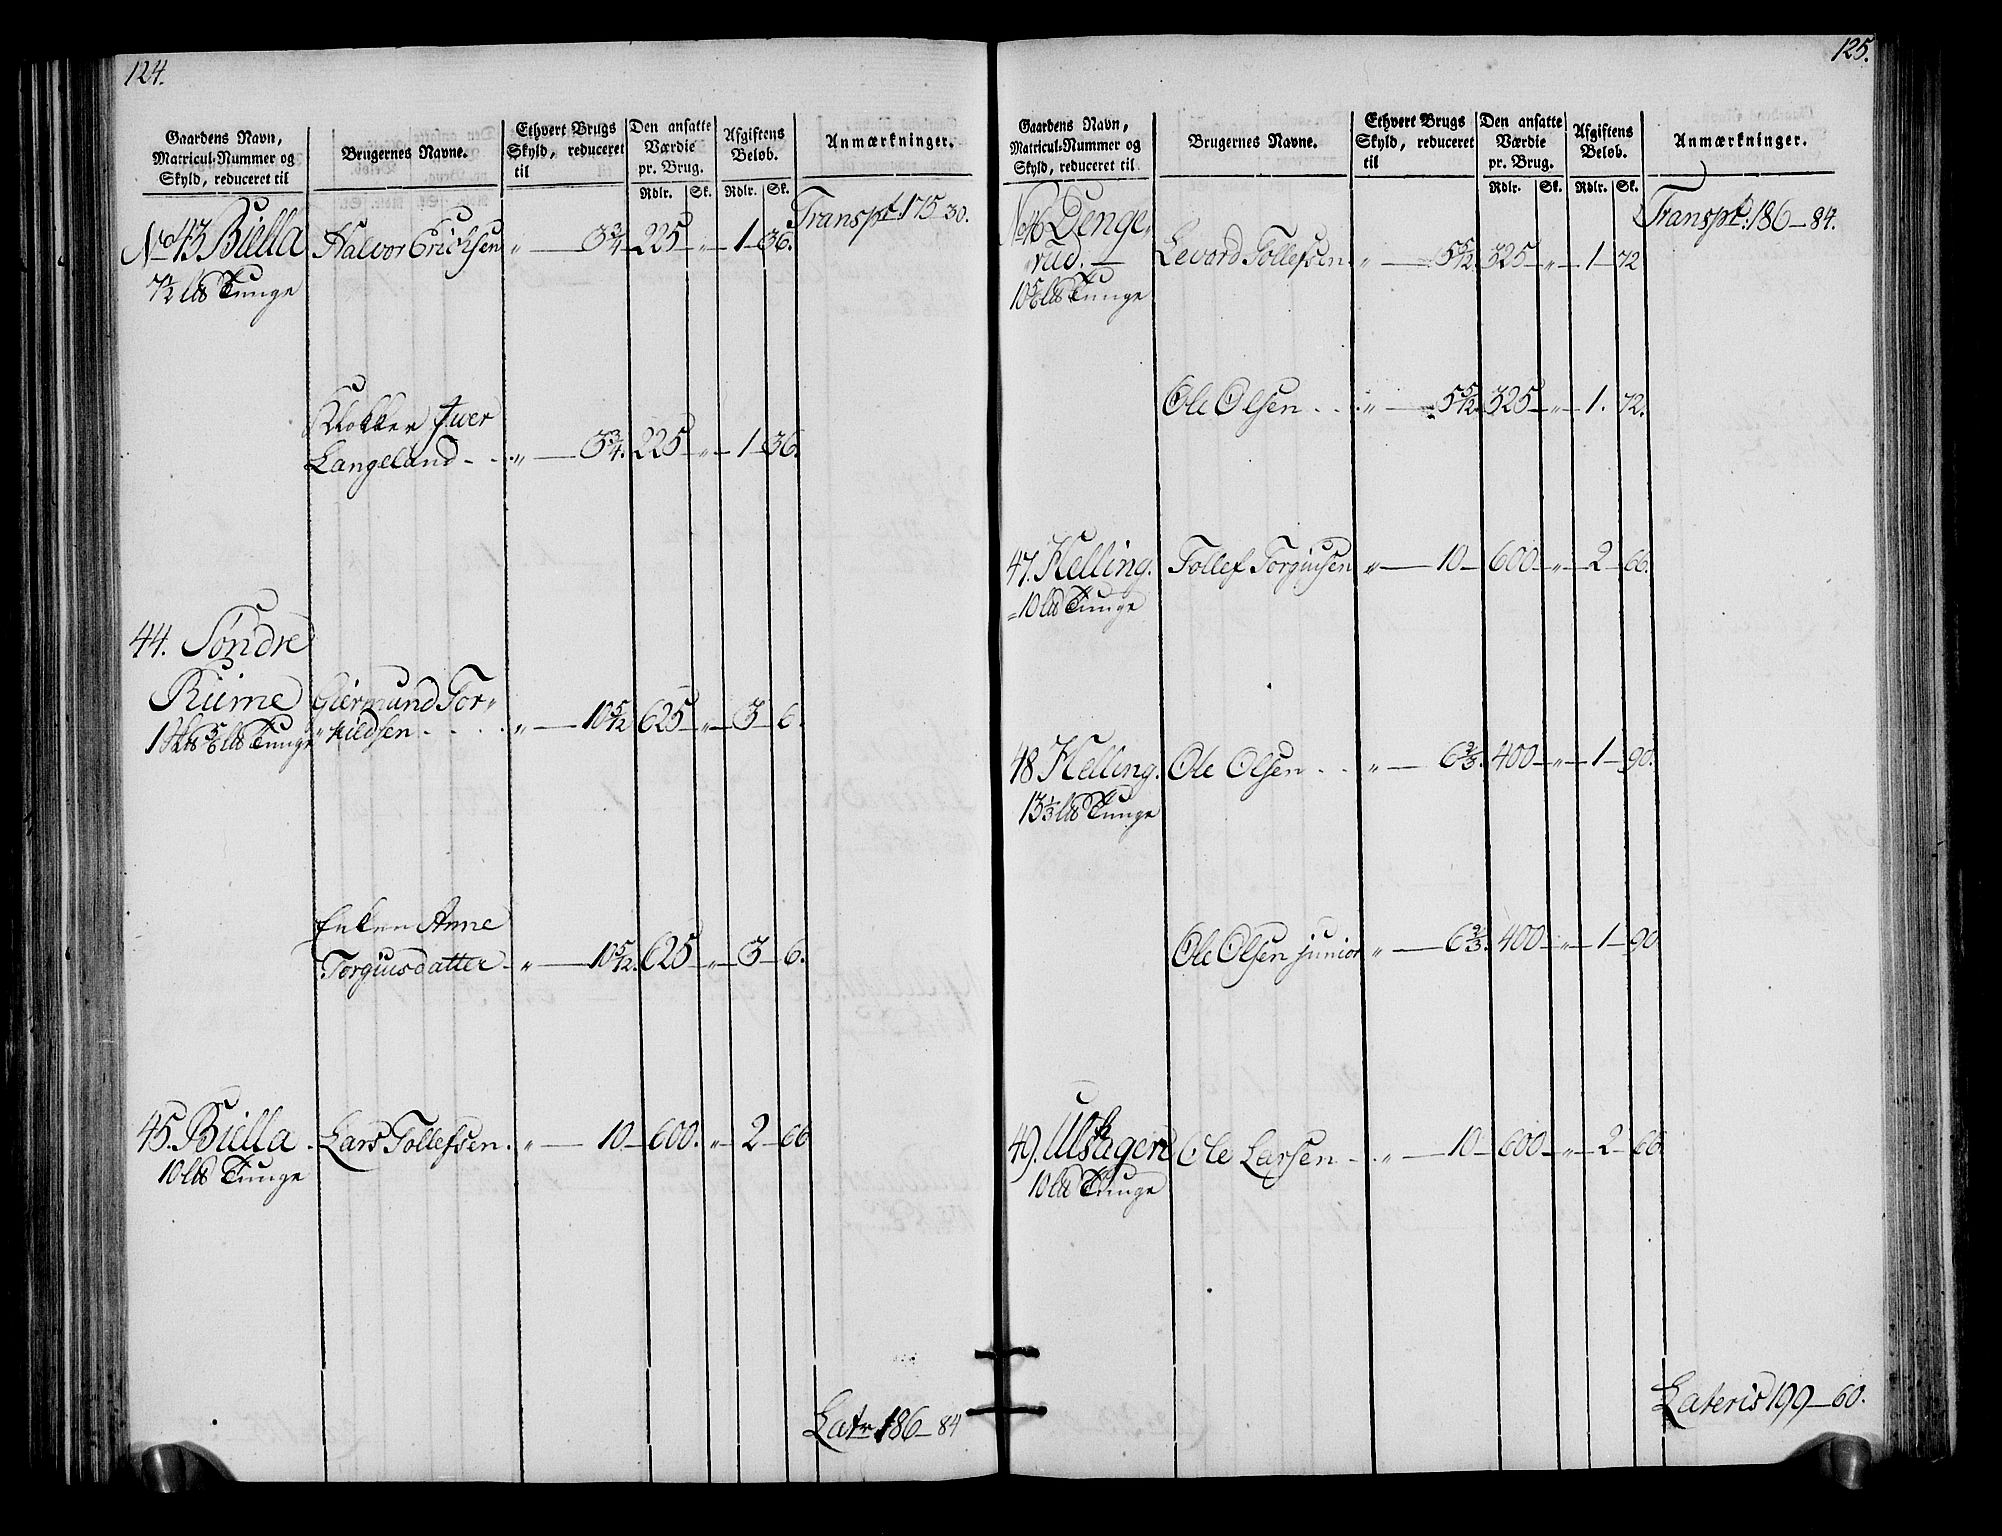 124.
Gaardens Navn, Matricul-Nummer og Skyld, reduceret til
Brugernes Navne.
Ethvert Brugs Skyld, reduceret til
Den ansatte Værdie pr. Brug.
Afgiftens Beløb.
Anmærkninger.
Rdlr. Sk. Rdlr. Sk.
Transpt. 175 30.
No 43 Biella Halvor Erichsen „ — 3 3/4 225 — „ — 1 — 36.
7 1/2 lb Tunge
Klokker Iver
Langeland - . „ — 3 3/4. 225 — „ — 1 — 36.
44. Søndre
Rüime Giermund Tor„
1 5/6 lb Tunge „kildsen . . . . „ — 10 5/12 625 — „ — 3 — 6.
Enken Anne
Torgiusdatter - „ — 10 5/12. 625 — „ — 3 — 6.
45. Biella . Lars Tollefsen. „ — 10 — 600. „ — 2 — 66
10 lb Tunge
Latr. 186 — 84
125.
Gaardens Navn, Matricul-Nummer og Skyld, reduceret til
Brugernes Navne.
Ethvert Brugs Skyld, reduceret til
Den ansatte Værdie pr. Brug.
Afgiftens Beløb.
Anmærkninger.
Rdlr. Sk. Rdlr. Sk.
Transpt. 186 — 84.
No 46 Denge„
„rüd. — Levord Tollefsen „ — 5 5/12. 325 — „ — 1 — 72
10 5/6 lb Tunge
Ole Olsen . . . „ — 5 5/12. 325 — „ — 1. 72.
47. Helling. Tollef Torgiusen „ — 10 — 600 — „ — 2 — 66.
10 lb Tunge
48 Helling. Ole Olsen . . . „ — 6 2/3. 400 — „ — 1 — 90.
13 1/3 lb Tunge
Ole Olsen junior „ — 6 2/3. 400 — „ — 1 — 90
49. Ulshagen Ole Larsen - . „ — 10 — 600 — „ — 2 — 66.
10 lb Tunge
Lateris 199 — 60.